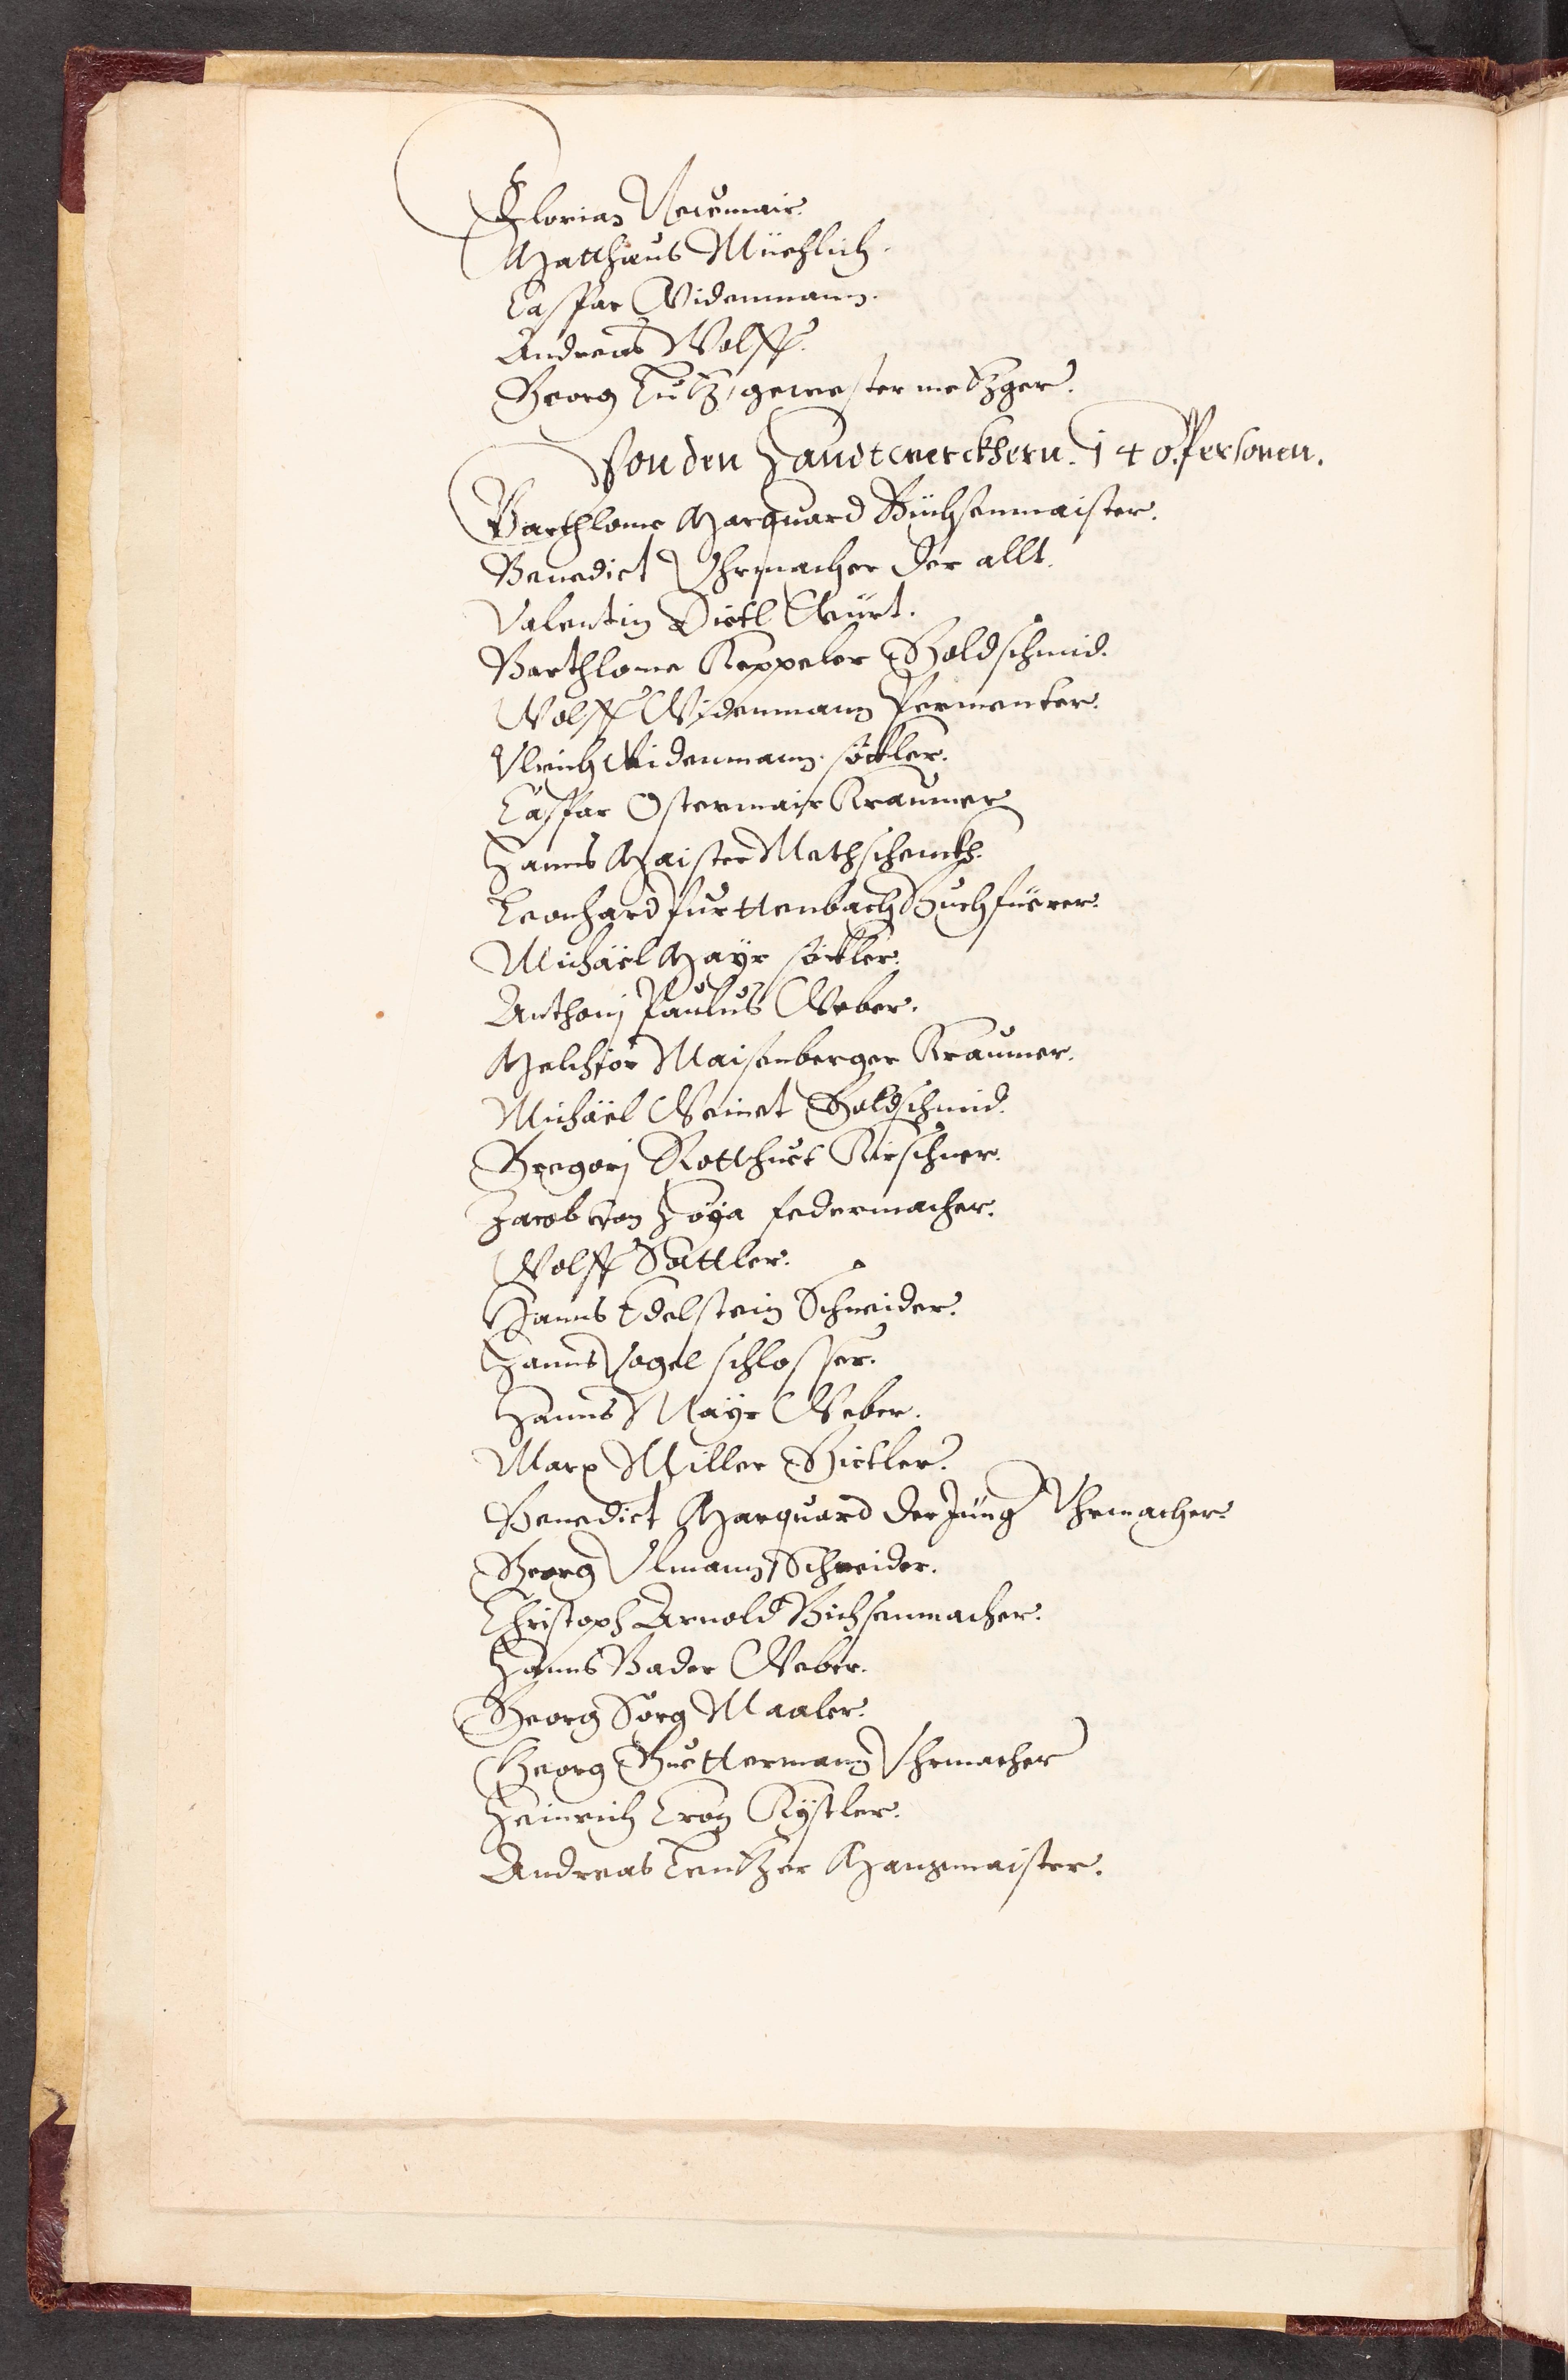 Florian Neumair.
Matthäus Müehlich.
Caspar Widenmann.
Andreas Wolff.
Georg Lutz, gewester metzger.
Von den Handtwerckhern. 140. Personen.
Barthlome Marquard Büchsenmaister.
Benedict Vhrmacher der allt.
Valentin Dietl Würt.
Barthlome Keppeler Goldschmid.
Wolff Widenmann Permenter.
Vlrich Widenmann söckler.
Caspar Ostermair Kraumer
Hanns Maister Methschenckh.
Leonhard furttenbach Buchfüerer.
Michäel Mayr söckler.
Anthonj Paulus Weber.
Melchior Maisenberger Kraumer.
Michäel Weinet Goldschmid.
Gregorj Rotthuet Kirschner.
Jacob von Hoya federmacher.
Wolff Sattler.
Hanns Edelstein Schneider.
Hanns Vogel schlosser.
Hanns Mayr Weber.
Marx Miller Bietler.
Benedict Marquard der Jüng Vhrmacher.
Georg Vlmann Schneider.
Christoph Arnold Bichsenmacher.
Hanns Bader Weber.
Georg Sorg Maaler.
Georg Guettermann Vhrmacher
Heinrich Cron Kystler.
Andreas Lentzer Mangmaister.